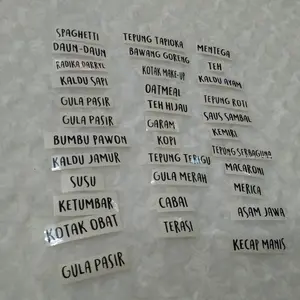 SPAGHETTI
DAUN-DAUN
RADIKA DARRYL
KALDU SAPI
GULA PASIR
GULA PASIR
BUMBU PAWON
KALDU JAMUR
SUSU
KETUMBAR
KOTAK OBAT
GULA PASIR
TEPUNG TAPIOKA
BAWANG GORENG
KOTAK MAKE-UP
OATMEAL
TEH HIJAU
GARAM
KOPI
TEPUNG TERIGU
GULA MERAH
CABAI
TERASI
MENTEGA
TEH
KALDU AYAM
TEPUNG ROTI
SAUS SAMBAL
KEMIRI
TEPUNG SERBAGUNA
MACARONI
MERICA
ASAM JAWA
KECAP MANIS